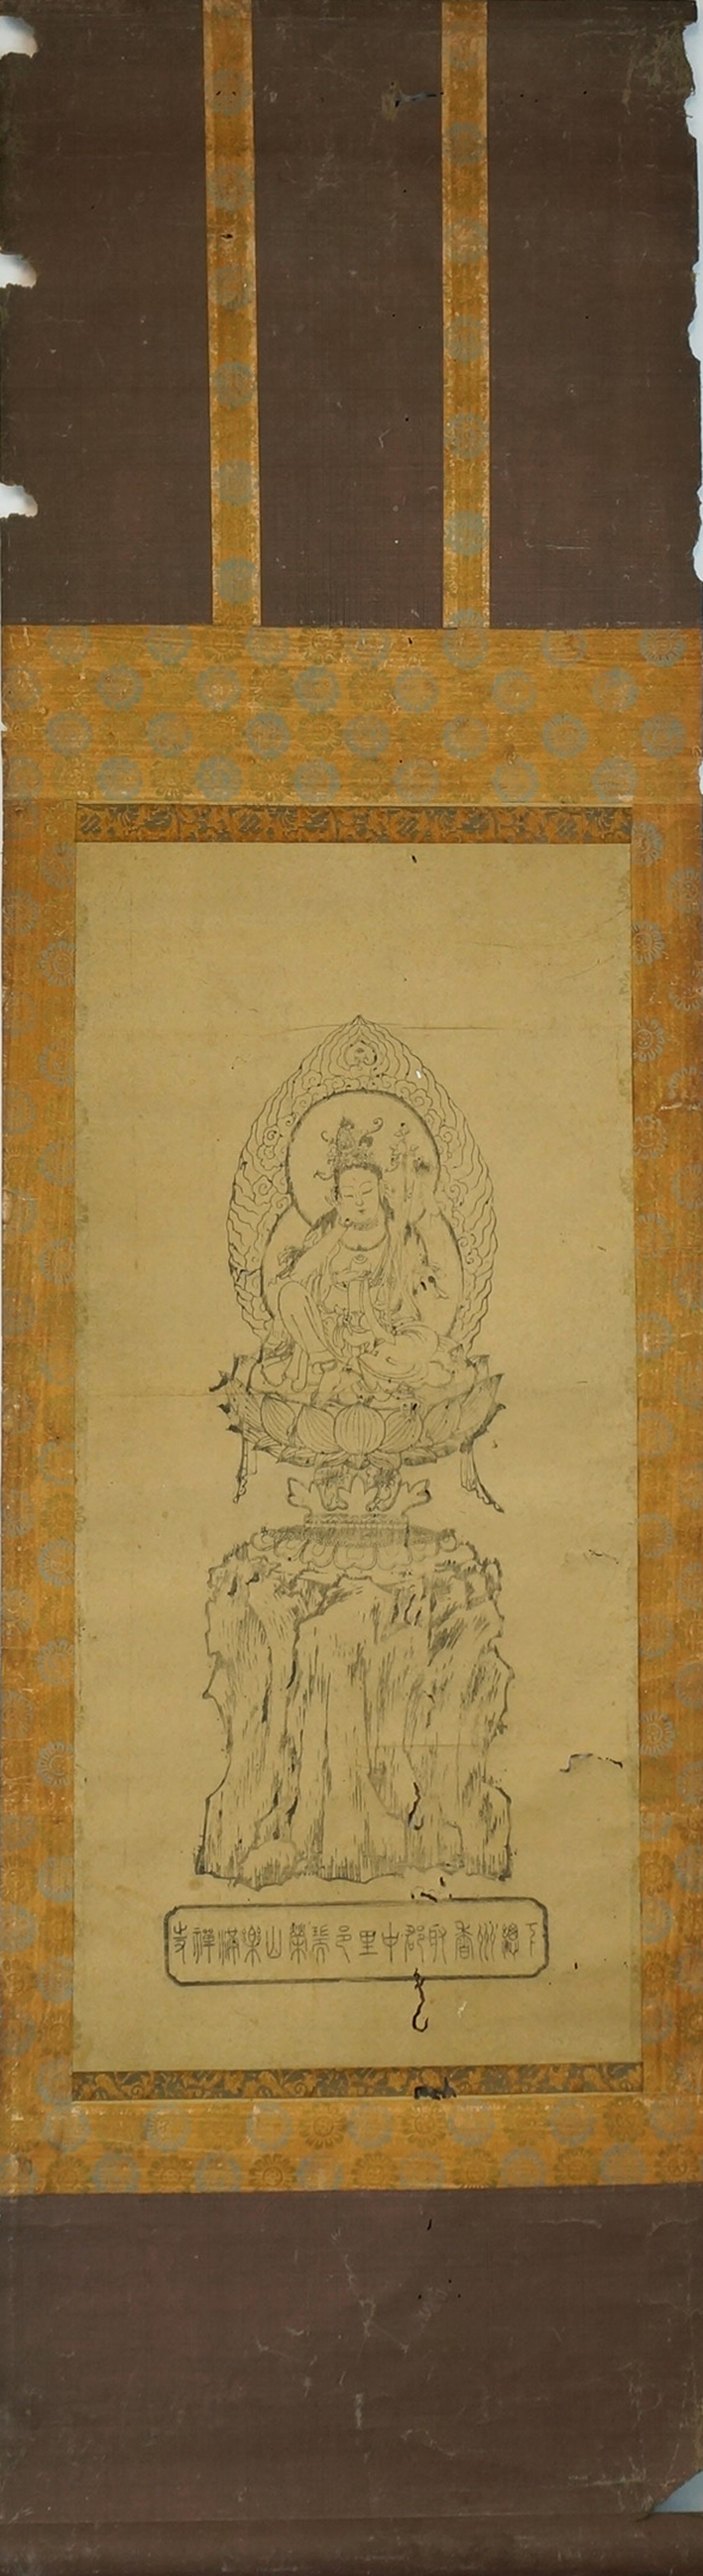 下總州香取郡中里邑榮山樂滿禪寺